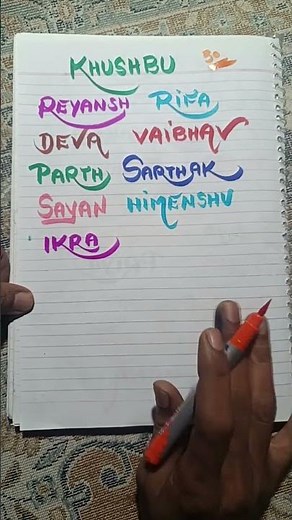 KHUSHBU
REYANSH RIFA
DEVA VAIBHAV
PARTH SARTHAK
SAYAN HIMENSHU
IKRA